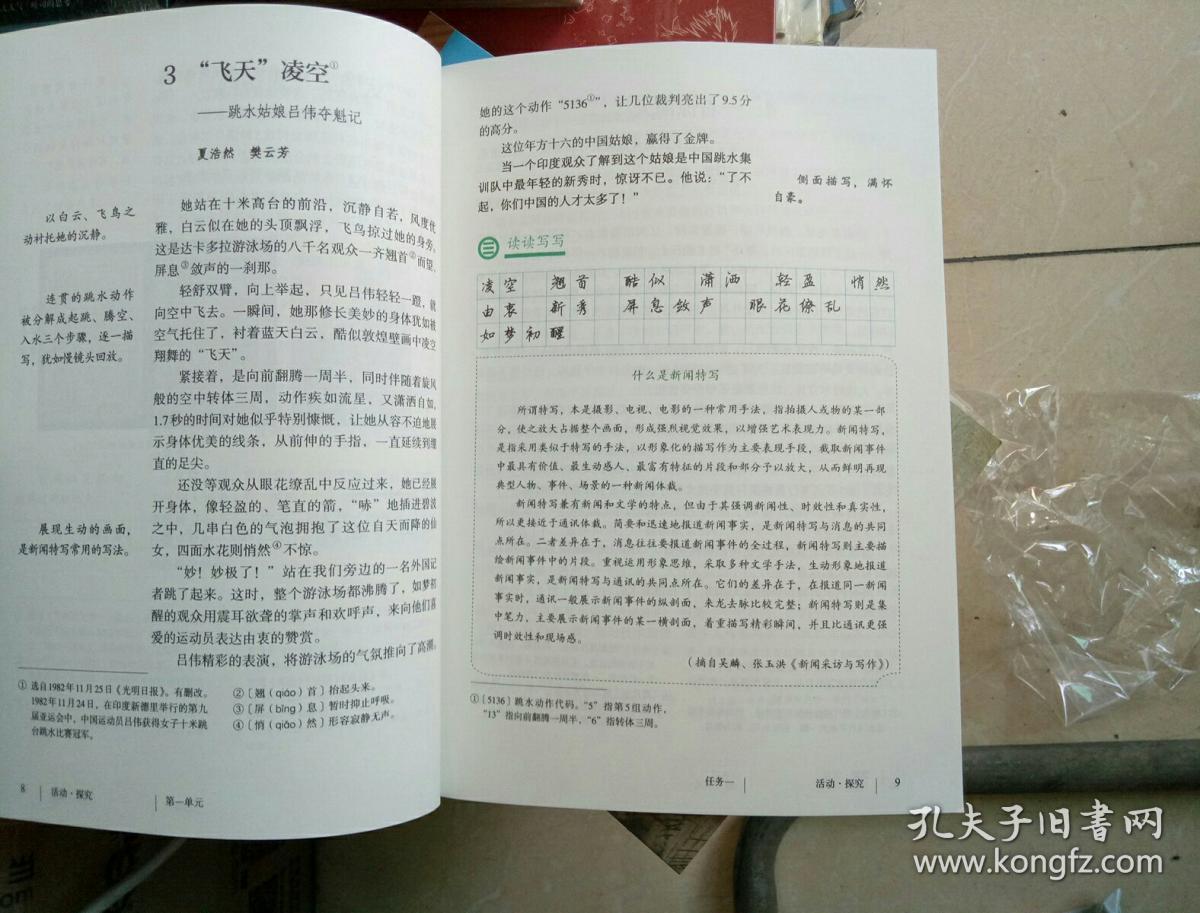 3 “飞天”凌空①
——跳水姑娘吕伟夺魁记
夏浩然 樊云芳
她站在十米高台的前沿，沉静自若，风度优
雅，白云似在她的头顶飘浮，飞鸟掠过她的身旁。
这是达卡多拉游泳场的八千名观众一齐翘首②而望、
屏息③敛声的一刹那。
轻舒双臂，向上举起，只见吕伟轻轻一蹬，就
向空中飞去。一瞬间，她那修长美妙的身体犹如被
空气托住了，衬着蓝天白云，酷似敦煌壁画中凌空
翔舞的“飞天”。
紧接着，是向前翻腾一周半，同时伴随着旋风
般的空中转体三周，动作疾如流星，又潇洒自如，
1.7秒的时间对她似乎特别慷慨，让她从容不迫地展
示身体优美的线条，从前伸的手指，一直延续到绷
直的足尖。
还没等观众从眼花缭乱中反应过来，她已经展
开身体，像轻盈的、笔直的箭，“哧”地插进碧波
之中，几串白色的气泡拥抱了这位自天而降的仙
女，四面水花则悄然④不惊。
“妙！妙极了！”站在我们旁边的一名外国记
者跳了起来。这时，整个游泳场都沸腾了，如梦初
醒的观众用震耳欲聋的掌声和欢呼声，来向他们喜
爱的运动员表达由衷的赞赏。
吕伟精彩的表演，将游泳场的气氛推向了高潮。
以白云、飞鸟之
动衬托她的沉静。
连贯的跳水动作
被分解成起跳、腾空、
入水三个步骤，逐一描
写，犹如慢镜头回放。
展现生动的画面，
是新闻特写常用的写法。
① 选自1982年11月25日《光明日报》。有删改。
1982年11月24日，在印度新德里举行的第九
届亚运会中，中国运动员吕伟获得女子十米跳
台跳水比赛冠军。
②〔翘（qiáo）首〕抬起头来。
③〔屏（bǐng）息〕暂时抑止呼吸。
④〔悄（qiǎo）然〕形容寂静无声。
8 活动·探究 第一单元
她的这个动作“5136①”，让几位裁判亮出了9.5分
的高分。
这位年方十六的中国姑娘，赢得了金牌。
当一个印度观众了解到这个姑娘是中国跳水集
训队中最年轻的新秀时，惊讶不已。他说：“了不
起，你们中国的人才太多了！”
侧面描写，满怀
自豪。
读读写写
凌空 翘首 酷似 潇洒 轻盈 悄然
由衷 新秀 屏息敛声 眼花缭乱
如梦初醒
什么是新闻特写
所谓特写，本是摄影、电视、电影的一种常用手法，指拍摄人或物的某一部
分，使之放大占据整个画面，形成强烈视觉效果，以增强艺术表现力。新闻特写，
是指采用类似于特写的手法，以形象化的描写作为主要表现手段，截取新闻事件
中最具有价值、最生动感人、最富有特征的片段和部分予以放大，从而鲜明再现
典型人物、事件、场景的一种新闻体裁。
新闻特写兼有新闻和文学的特点，但由于其强调新闻性、时效性和真实性，
所以更接近于通讯体裁。简要和迅速地报道新闻事实，是新闻特写与消息的共同
点所在。二者差异在于，消息往往要报道新闻事件的全过程，新闻特写则主要描
绘新闻事件中的片段。重视运用形象思维，采取多种文学手法，生动形象地报道
新闻事实，是新闻特写与通讯的共同点所在。它们的差异在于，在报道同一新闻
事实时，通讯一般展示新闻事件的纵剖面，来龙去脉比较完整；新闻特写则是集
中笔力，主要展示新闻事件的某一横剖面，着重描写精彩瞬间，并且比通讯更强
调时效性和现场感。
（摘自吴麟、张玉洪《新闻采访与写作》）
①〔5136〕跳水动作代码。“5”指第5组动作，
“13”指向前翻腾一周半，“6”指转体三周。
任务一 活动·探究 9
孔夫子旧书网
www.kongfz.com